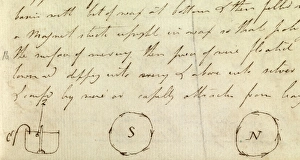 basin with bit of wax at bottom & then filled
a Magnet stuck upright in wax so that pole
the surface of mercury then piece of wire floated
lower end dipping into mercy & above into silver
& carp by wire or capilly attraction from
S N